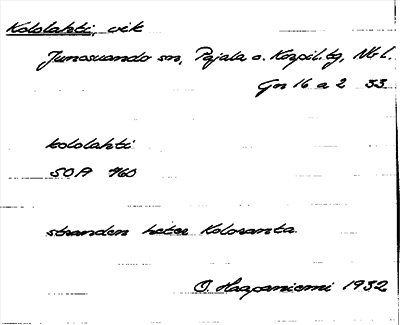 Kololahti, vik
Junosuando sn, Pajala o. Korpil. tg, Nb l.
Gn 16 a 2 33
kololahti
SOA 460
stranden heter Koloranta.
O. Haapaniemi 1932